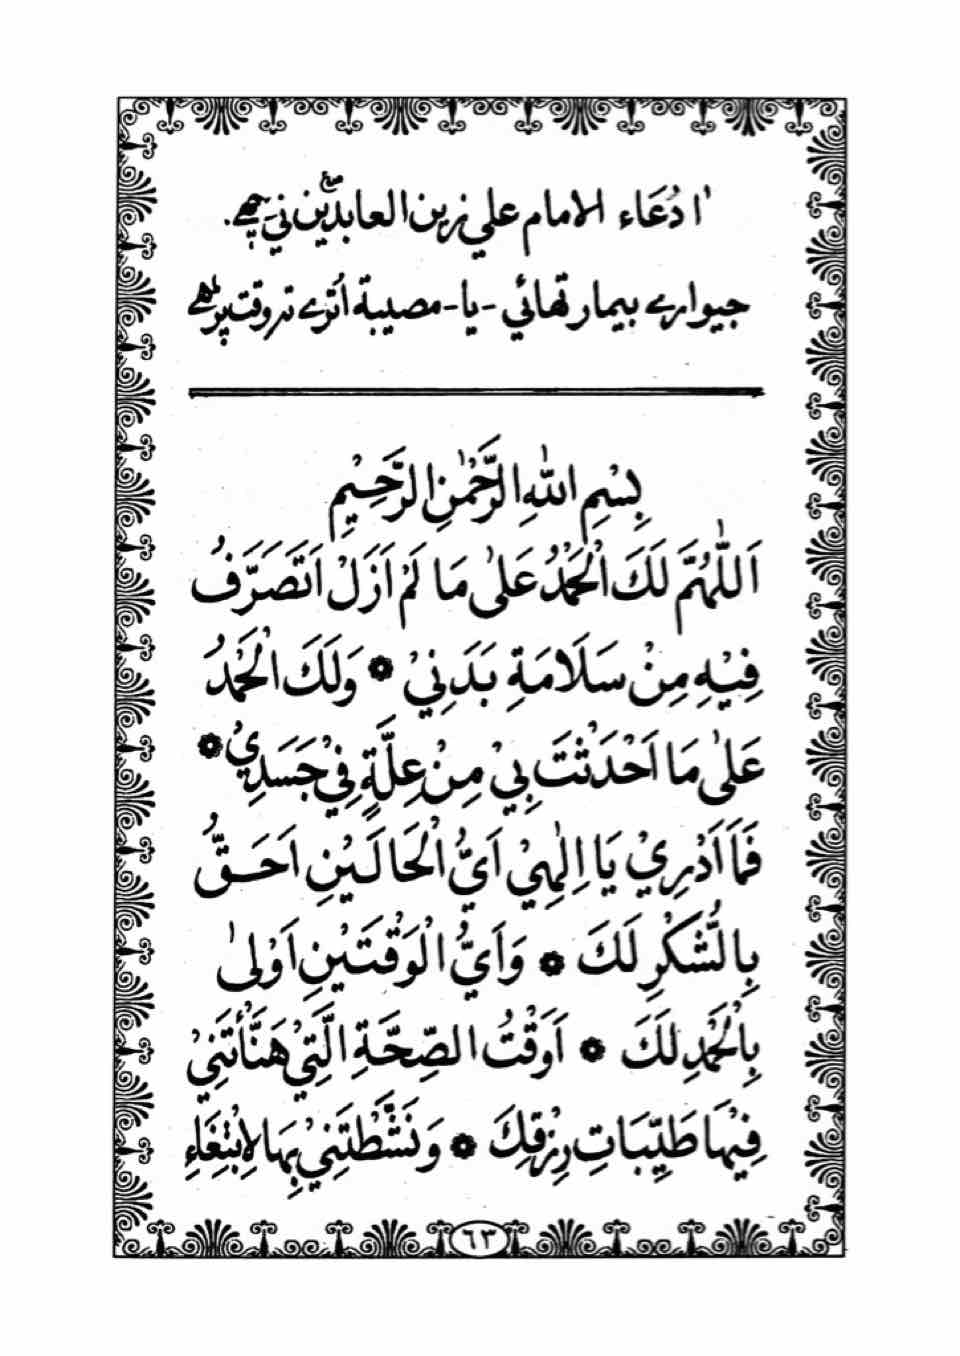 اٰ دُعَاء الامام علي زين العابدين ؑص ني چھے.
جيوارے بيمار تھائي -يا- مصيبة اُترے تہ وقت پڑھے
بِسْمِ اللهِ الرَّحْمٰنِ الرَّحِيْمِ
اَللّٰهُمَّ لَكَ الْحَمْدُ عَلىٰ مَا لَمْ اَزَلْ اَتَصَرَّفُ
فِيْهِ مِنْ سَلَامَةِ بَدَنِيْ * وَلَكَ الْحَمْدُ
عَلىٰ مَا اَحْدَثْتَ بِيْ مِنْ عِلَّةٍ فِيْ جَسَدِيْ *
فَمَا اَدْرِيْ يَا اِلٰهِيْ اَيُّ الْحَالَيْنِ اَحَقُّ
بِالشُّكْرِ لَكَ * وَاَيُّ الْوَقْتَيْنِ اَوْلىٰ
بِالْحَمْدِ لَكَ * اَوَقْتُ الصِّحَّةِ الَّتِيْ هَنَّأْتَنِيْ
فِيْهَا طَيِّبَاتِ رِزْقِكَ * وَنَشَّطْتَنِيْ بِهَا لِابْتِغَاءِ
٦٣